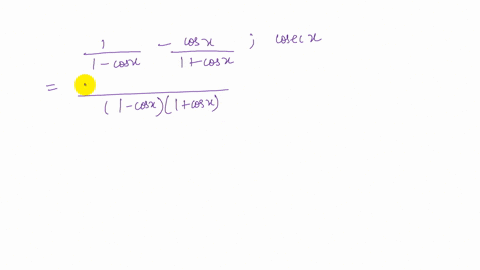 1/(1-cosx) - cosx/(1+cosx) ; cosec x
= /((1-cosx)(1+cosx))